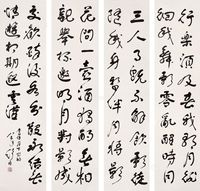 花間一壺酒獨酌無相
親舉杯邀明月對影成
三人月既不解飲影徒
隨我身暫伴月將影
行樂須及春我歌月徘
徊我舞影零亂醒時同
交歡醉後各分散永結無
情遊相期邈雲漢